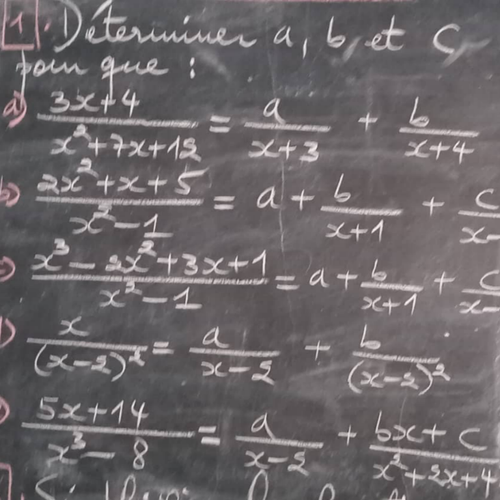 1. Déterminer a, b, et c,
pour que :
a) (3x+4)/(x²+7x+12) = a/(x+3) + b/(x+4)
b) (2x²+x+5)/(x²-1) = a + b/(x+1) + c/(x-
c) (x³-2x²+3x+1)/(x²-1) = a + b/(x+1) + c/(x-
d) x/(x-2)² = a/(x-2) + b/(x-2)²
(5x+14)/(x³-8) = a/(x-2) + (bx+c)/(x²+2x+4